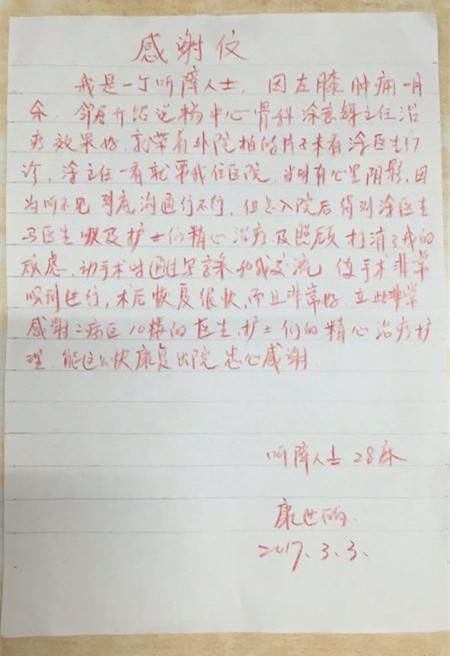 感谢仪
我是一个听障人士，因左膝肿痛一月
余，邻居介绍说杨中心骨科涂 主任治
疗效果好，就带着外院拍的片子来看涂医生门
诊，涂主任一看就要我住医院，当时有心里阴影，因
为听不见到底沟通行不行，但是入院后得到涂医生
马医生 及护士们精心治疗及照顾打消了我的
顾虑，动手术时通过写字来和我交流，使手术非常
顺利进行，术后恢复很快，而且非常好，在此非常
感谢二病区10楼的医生，护士们的精心治疗护
理，能这么快康复出院 忠心感谢
听障人士 28床
康世
2017.3.3.